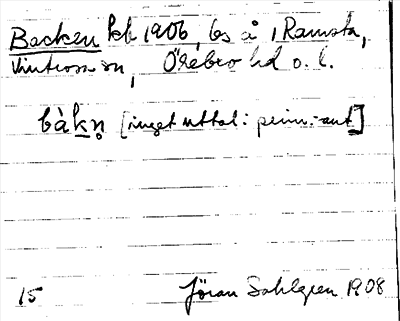 Backen kb 1906, ls å 1 Ramsta,
Vintrosa sn, Örebro hd o. l.
bàkn̥ [inget uttal: prim.-ant.]
15 Jöran Sahlgren 1908